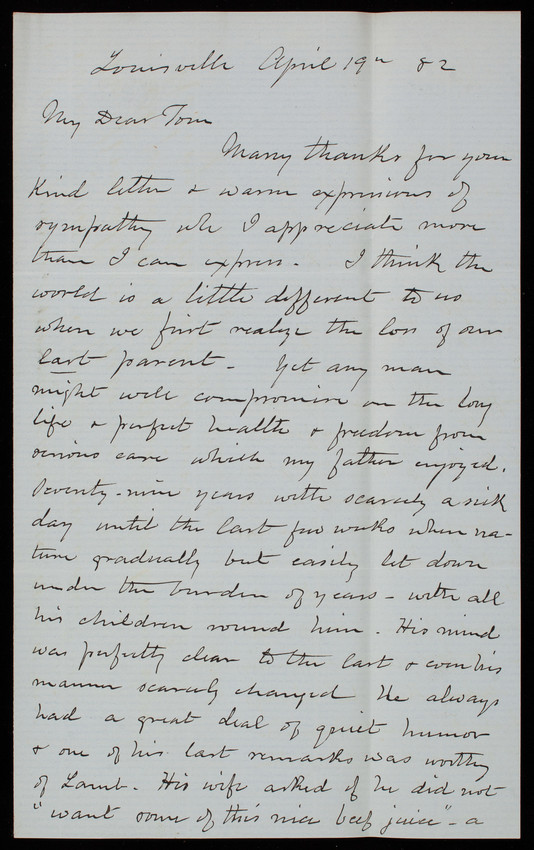 Louisville April 19th 82
My Dear Tom
Many thanks for your
kind letter & warm expressions of
sympathy wh I appreciate more
than I can express - I think the
world is a little different to us
when we first realize the loss of our
last parent - Yet any man
might well compromise on the long
life & perfect health & freedom from
serious care which my father enjoyed.
Seventy-nine years with scarcely a sick
day until the last few weeks when na-
ture gradually but easily let down
under the burden of years - with all
his children round him. His mind
was perfectly clear to the last & even his
manner scarcely changed He always
had a great deal of quiet humor
& one of his last remarks was worthy
of Lamb. His wife asked if he did not
"want some of this nice beef juice" - a